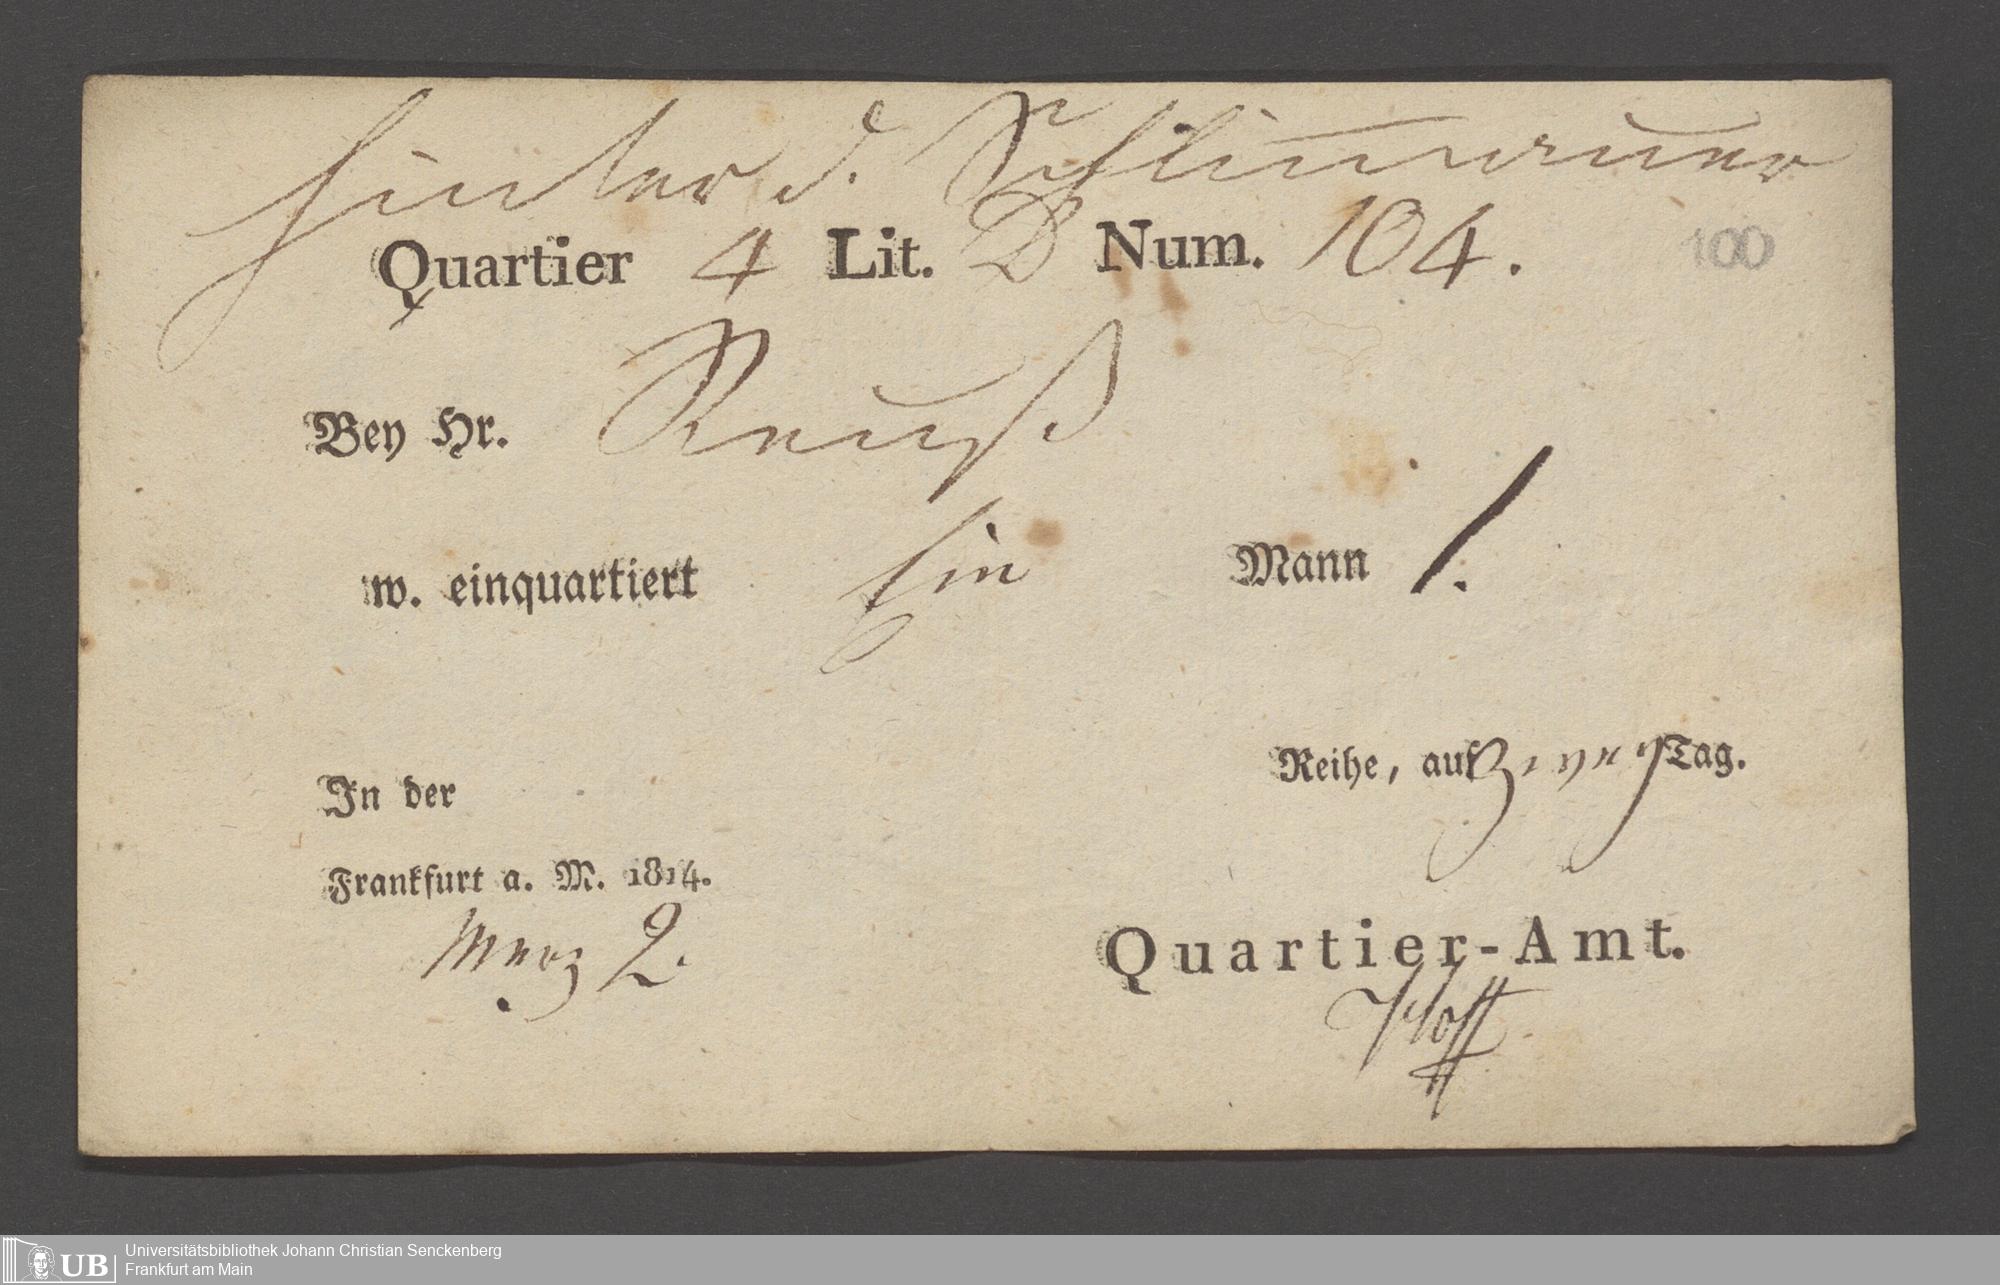 Hinter d. Schlimmauer
Quartier 4 Lit. D Num. 104.
100
Bey Hr. Reuß
w. einquartiert Ein Mann 1.
In der Reihe, auf zwey Tag.
Frankfurt a. M. 1814.
Merz 2.
Quartier-Amt.
Hoff
UB Universitätsbibliothek Johann Christian Senckenberg
Frankfurt am Main